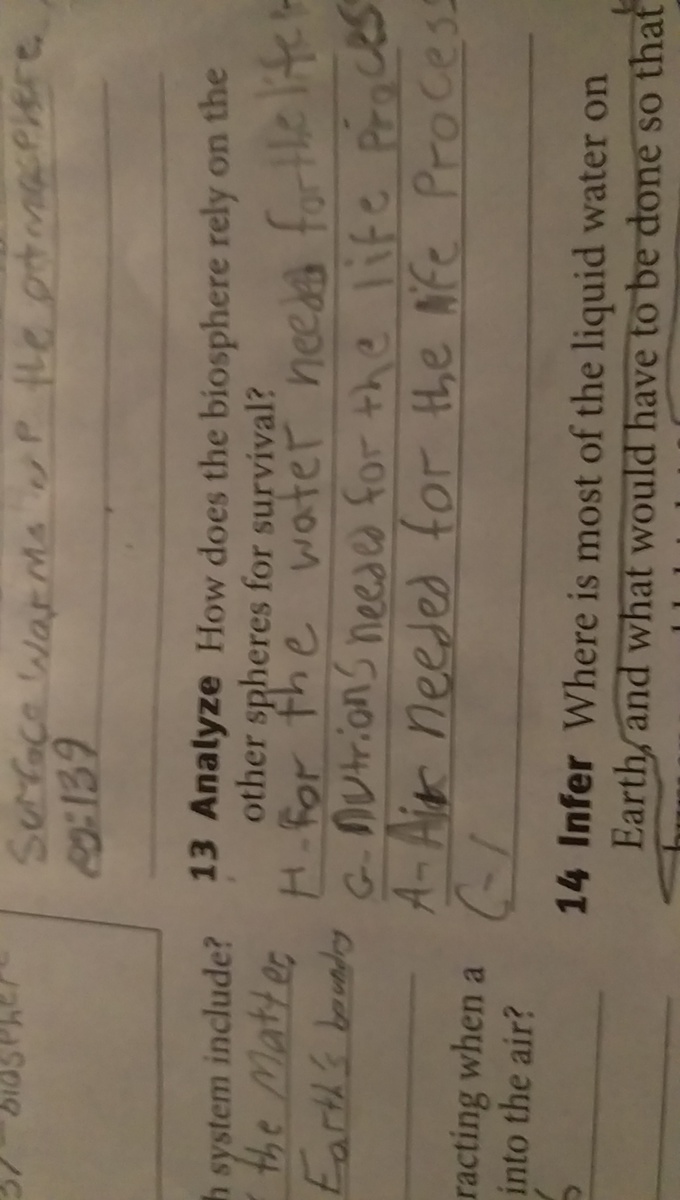 Surface warms up the atmosphere.
pg:139
13 Analyze How does the biosphere rely on the
other spheres for survival?
H-For the water needed for the life
G-Nutrions needed for the life Process
A-Air needed for the life Process
C-
14 Infer Where is most of the liquid water on
Earth, and what would have to be done so that
biosphere
system include?
the Matter
Earth's boundry
racting when a
into the air?